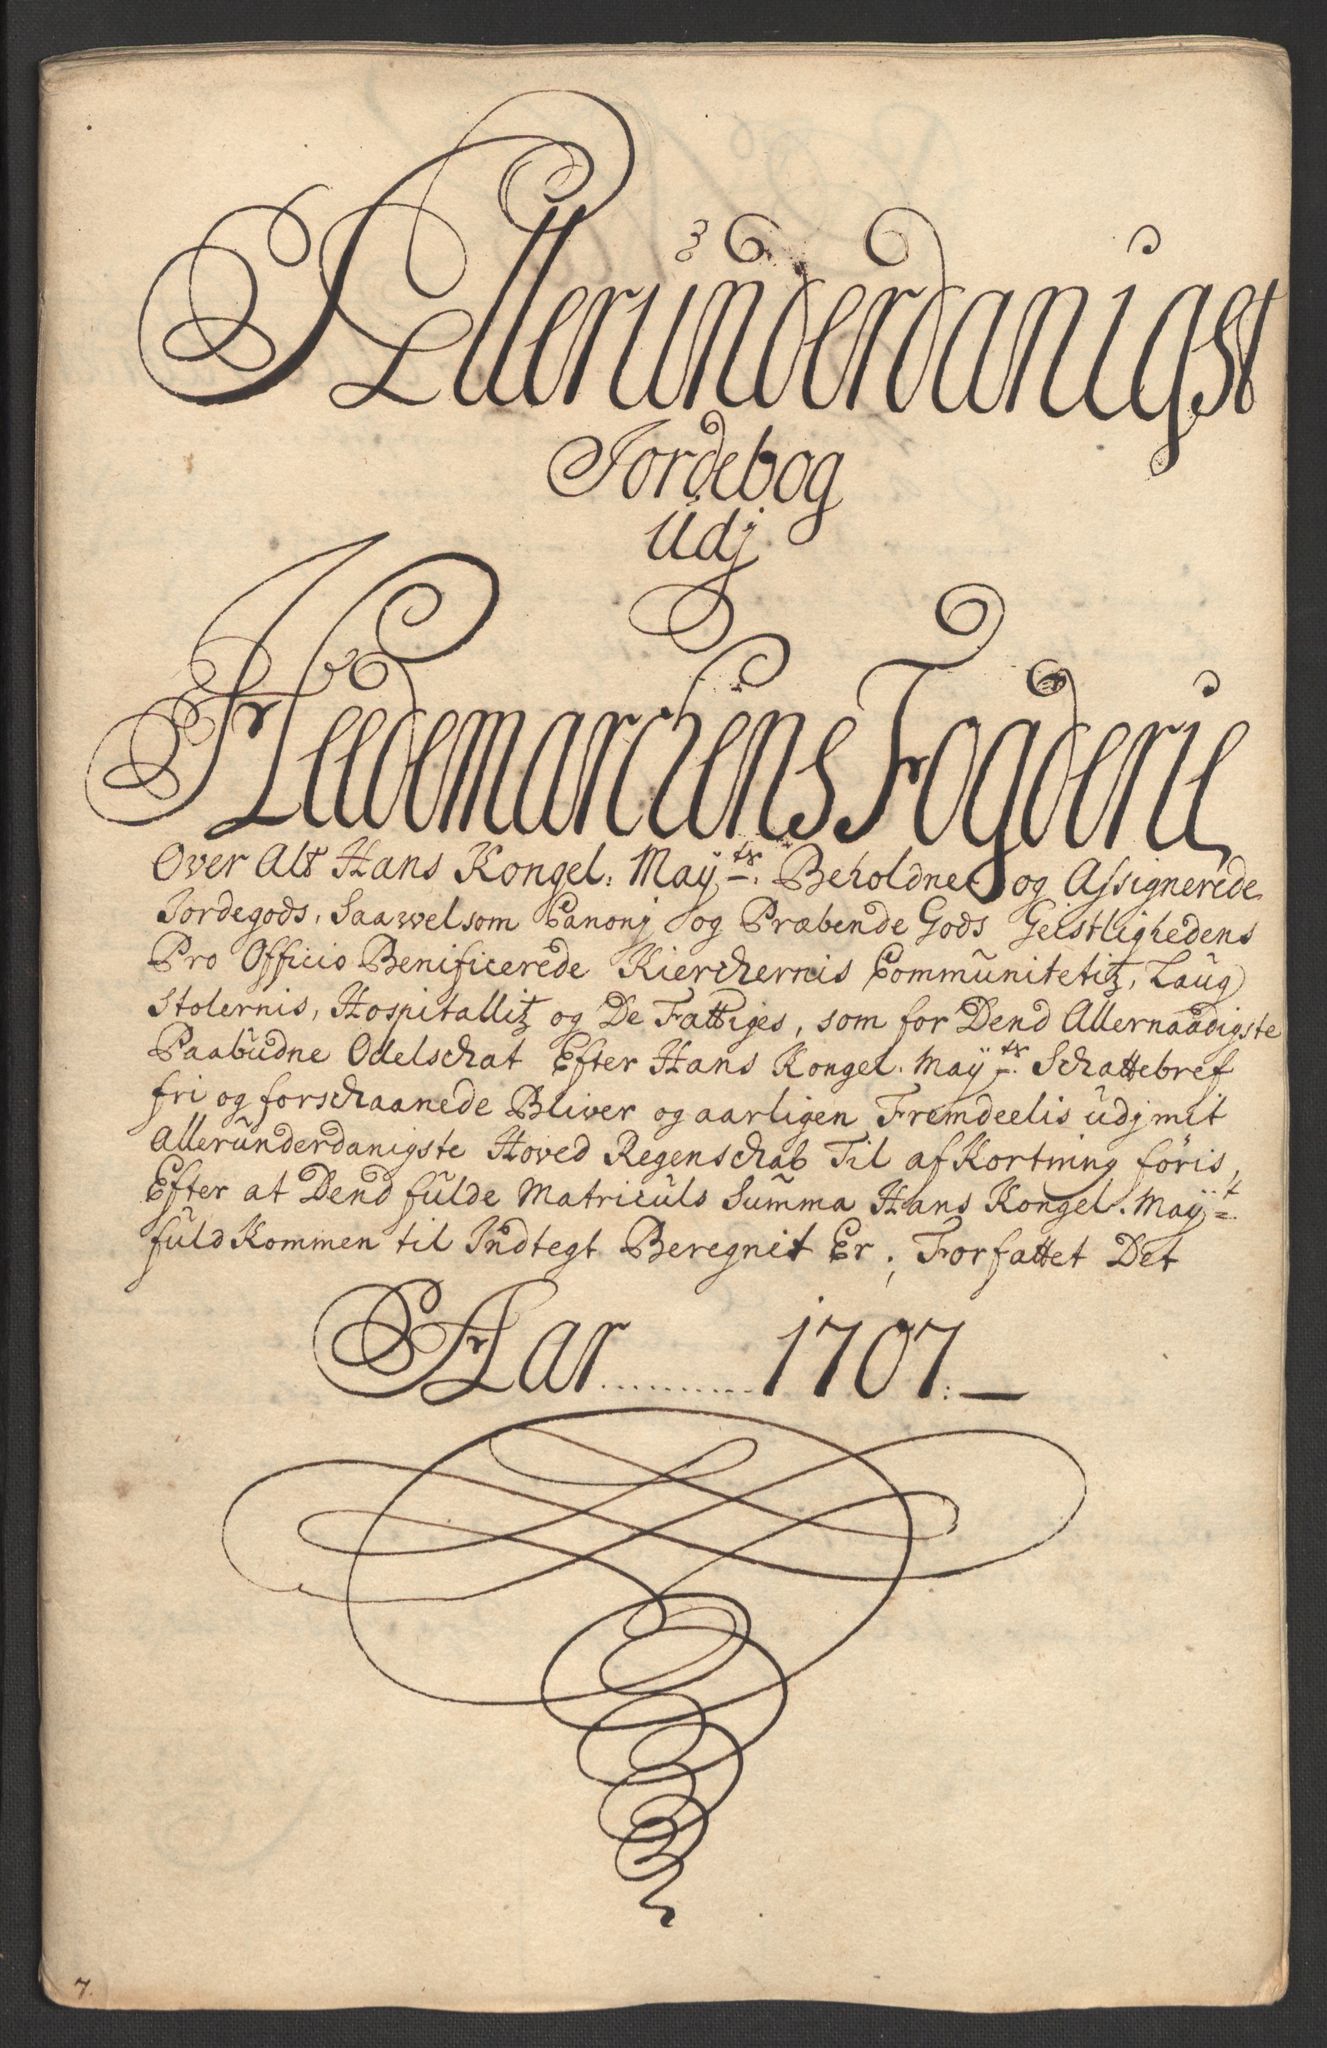 Alleründerdanigst
Jordebog
Udj
Heedemarchens Fogderie
Over Alt Hans Kongel: Maÿtz. Beholdne og Assignerede
Jordegods, Saawelsom Canonj og Præbende Gods Geistlighedens
Pro Officio Benificerede Kierchernis Communitetitz, Laug
Stolernis, Hospitallitz og De Fattiges, som for Dend Allernaadigste
Paabüdne Odelschat Efter Hans Kongel. Maÿtz. Schattebref
fri og forschaanede Bliver og aarligen Fremdeelis udj mit
Alleründerdanigste Hoved Regenschab Til afKortning föris,
Efter at Dend fülde Matriculs Summa Hans Kongel. Maÿt
füldKommen til Indtegt Beregnit Er; Forfattet Det
Aar .......... 1707.
7.